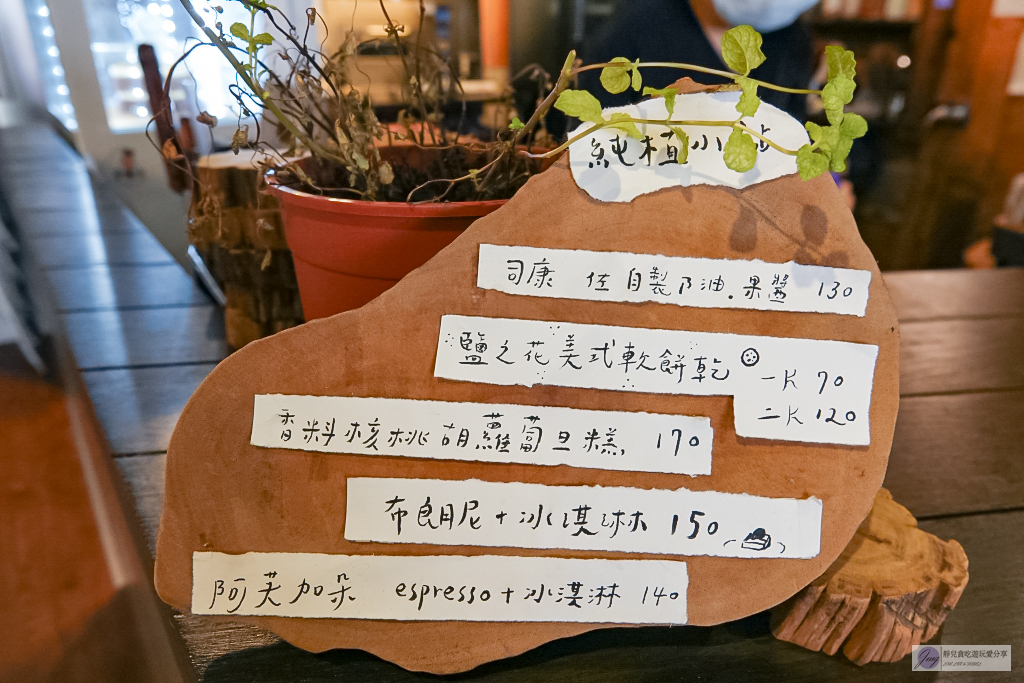 純植小站
司康 佐自製奶油.果醬 130
鹽之花美式軟餅乾
一片 70
二片 120
香料核桃胡蘿蔔旦糕 170
布朗尼+冰淇淋 150
阿芙加朵 espresso+冰淇淋 140
靜兒貪吃遊玩愛分享